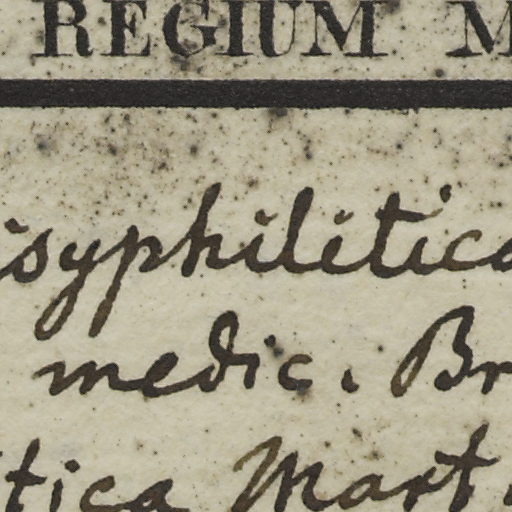 REGIUM M
isyphilitica
medic. Br
tica Mart.